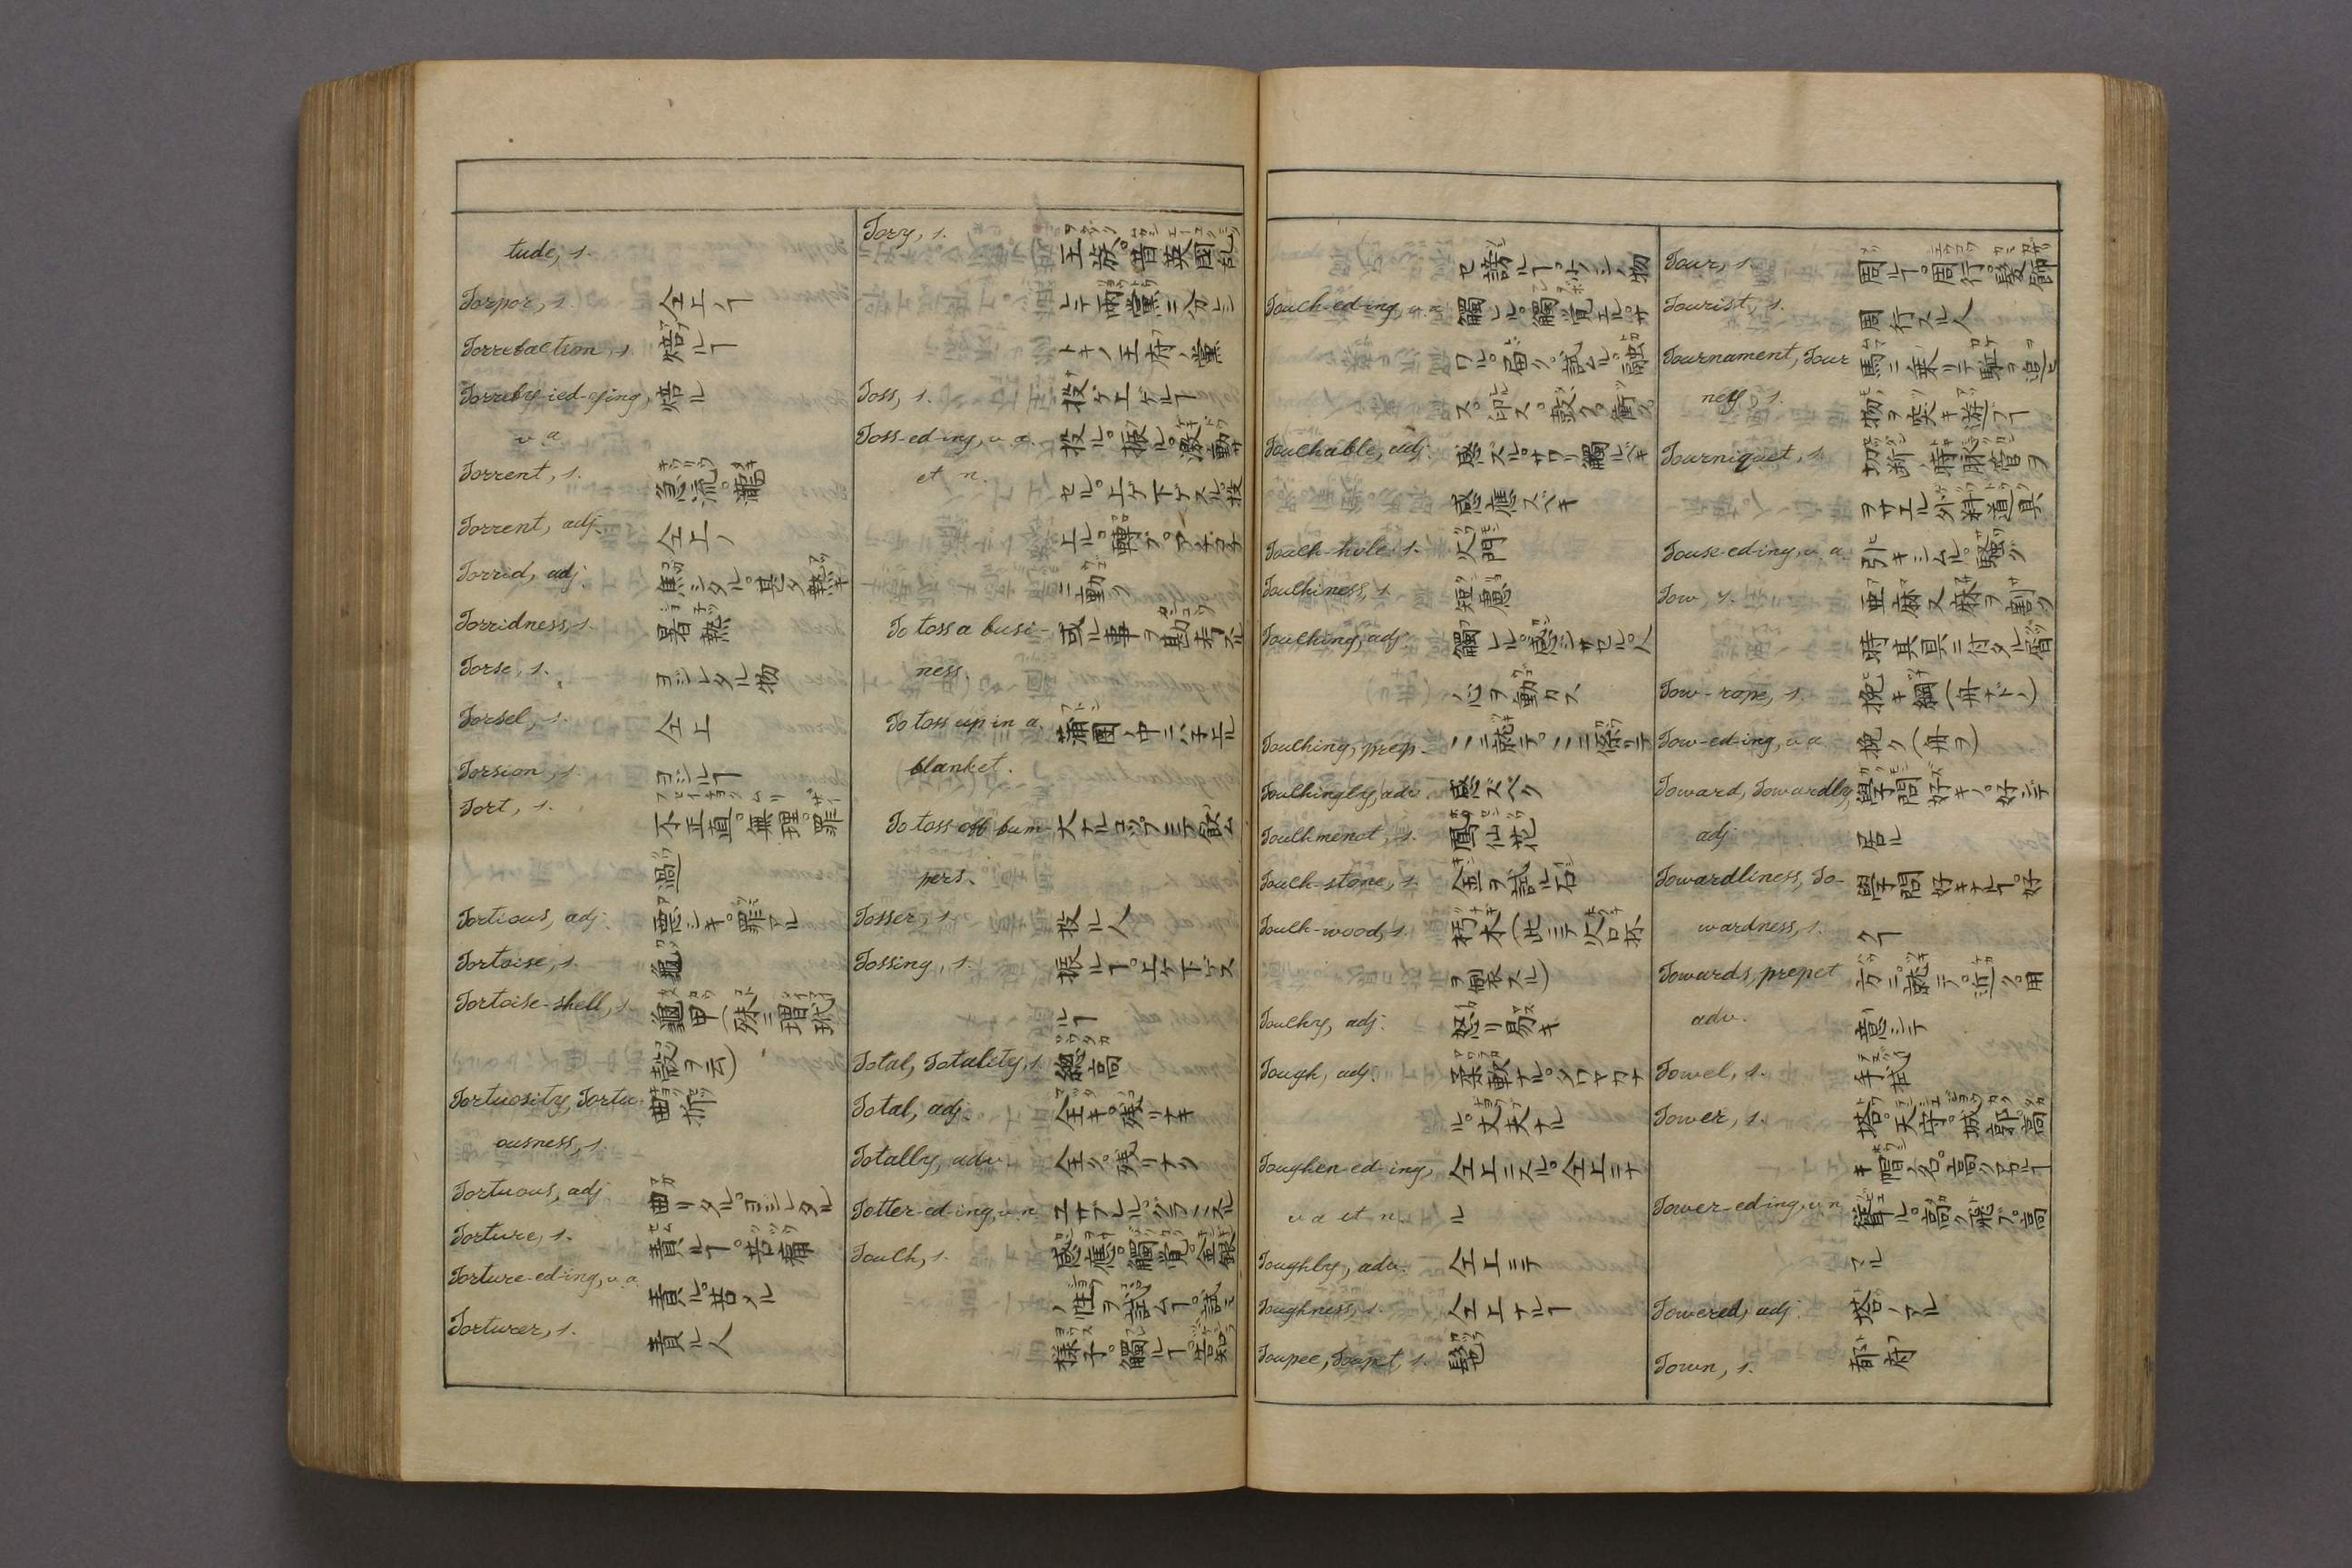 tude, s.
Torpor, s. 仝上ノヿ
Torrefaction, s. 焙ルヿ
Torrefy-ied-ying, 焙ル
v a
Torrent, s. 急流。瀧
Torrent, adj. 仝上ノ
Torrid, adj. 焦シタル。甚タ熱キ
Torridness, s. 暑熱
Torse, s. ヨジレタル物
Torsel, s. 仝上
Torsion, s. ヨジルヿ
Tort, s. 不正直。無理。罪
過
Tortious, adj. 悪シキ。罪アル
Tortoise, s. 龜
Tortoise-shell, s. 龜甲(殊ニ瑇玳
殻ヲ云)
Tortuosity, Tortu- 曲折
ousness, s.
Tortuous, adj 曲リタル。ヨジレタル
Torture, s. 責ルヿ。苦痛
Torture-ed-ing, v a. 責ル。苦メル
Torturer, s. 責ル人
Tory, s. 王族。昔英國乱
レテ兩黨ニ分レシ
トキノ王府ノ黨
Toss, s. 投ゲ上ゲルヿ
Toss-ed-ing, v a. 投ル。振ル。激動サ
et n. セル。上ゲ下ゲスル。投
上ル。轉ブ。アチコチ
ニ動ク
To toss a busi- 或ル事ヲ勘考スル
ness.
To toss up in a 蒲團ノ中ニハチ上ル
blanket.
To toss off bum- 大ナルコップニテ飲ム
pers.
Tosser, s. 投ル人
Tossing, s. 振ルヿ。上ケ下ゲス
ルヿ
Total, Totality, s. 總高
Total, adj. 全キ。残リナキ
Totally, adv. 全ク。残リナク
Totter-ed-ing, v. n. ユサブレル。グラ〵スル
Touch, s. 感應。觸覚。金銀
ノ性ヲ試ムヿ。試ミ
様子。觸ルヿ。告知
セ。謗ルヿ。少シノ物
Touch-ed-ing, v. a. 觸レル。觸覚エル。サ
ワル。届ク。試ム。
ス。印ス。鼓ク。衝ク
Touchable, adj. 感ズル。サワリ觸ルベキ
感應スベキ
Touch-hole, s. 火門
Touchiness, s. 短慮
Touching, adj. 觸レル。感ジサセル。人
心ヲ動カス
Touching, prep. 〵ニ就テ。〵ニ係リテ
Touchingly, adv. 感ズベク
Touchmenot, s. 鳳仙花
Touch-stone, s. 金ヲ試ル石
Touch-wood, s. 朽木(此ニテ火口抔
ヲ製スル)
Touchy, adj. 怒リ易キ
Tough, adj. 柔軟ナル。シワヤカナ
ル。丈夫ナル
Toughen-ed-ing, 仝上ニスル。仝上ニナ
v a et n. ル
Toughly, adv. 仝上ニテ
Toughness, s. 仝上ナルヿ
Toupee, Toupet, s. 髢
Tour, s. 周ルヿ。周行。髪飾
Tourist, s. 周行スル人
Tournament, Tour 馬ニ乗リテ駈ヲ追ヒ
ney, s. 物ヲ突キ遊ブヿ
Tourniquet, s. 切断ノ時脉管ヲ
ヲサエル外科道具
Touse-ed-ing, v a. 引キシムル。騒グ
Tow, s. 亜麻又麻ヲ割ク
時其具ニ付タル屑
Tow-rope, s. 挽キ綱(舟ナドノ)
Tow-ed-ing, v a. 挽ク(舟ヲ)
Toward, Towardly, 學問好キノ。好シテ
adj. 居ル
Towardliness, To- 學問好キナルヿ。好
wardness, s. クヿ
Towards, prep et 方ニ。就テ。近ク。用
adv. 意シテ
Towel, s. 手拭
Tower, s. 塔。天守。城郭。高
キ帽ノ名。高クアルヿ
Tower-ed-ing, v n. 聳ル。高ク飛ブ。高
マル
Towered, adj. 塔ノアル
Town, s. 都府